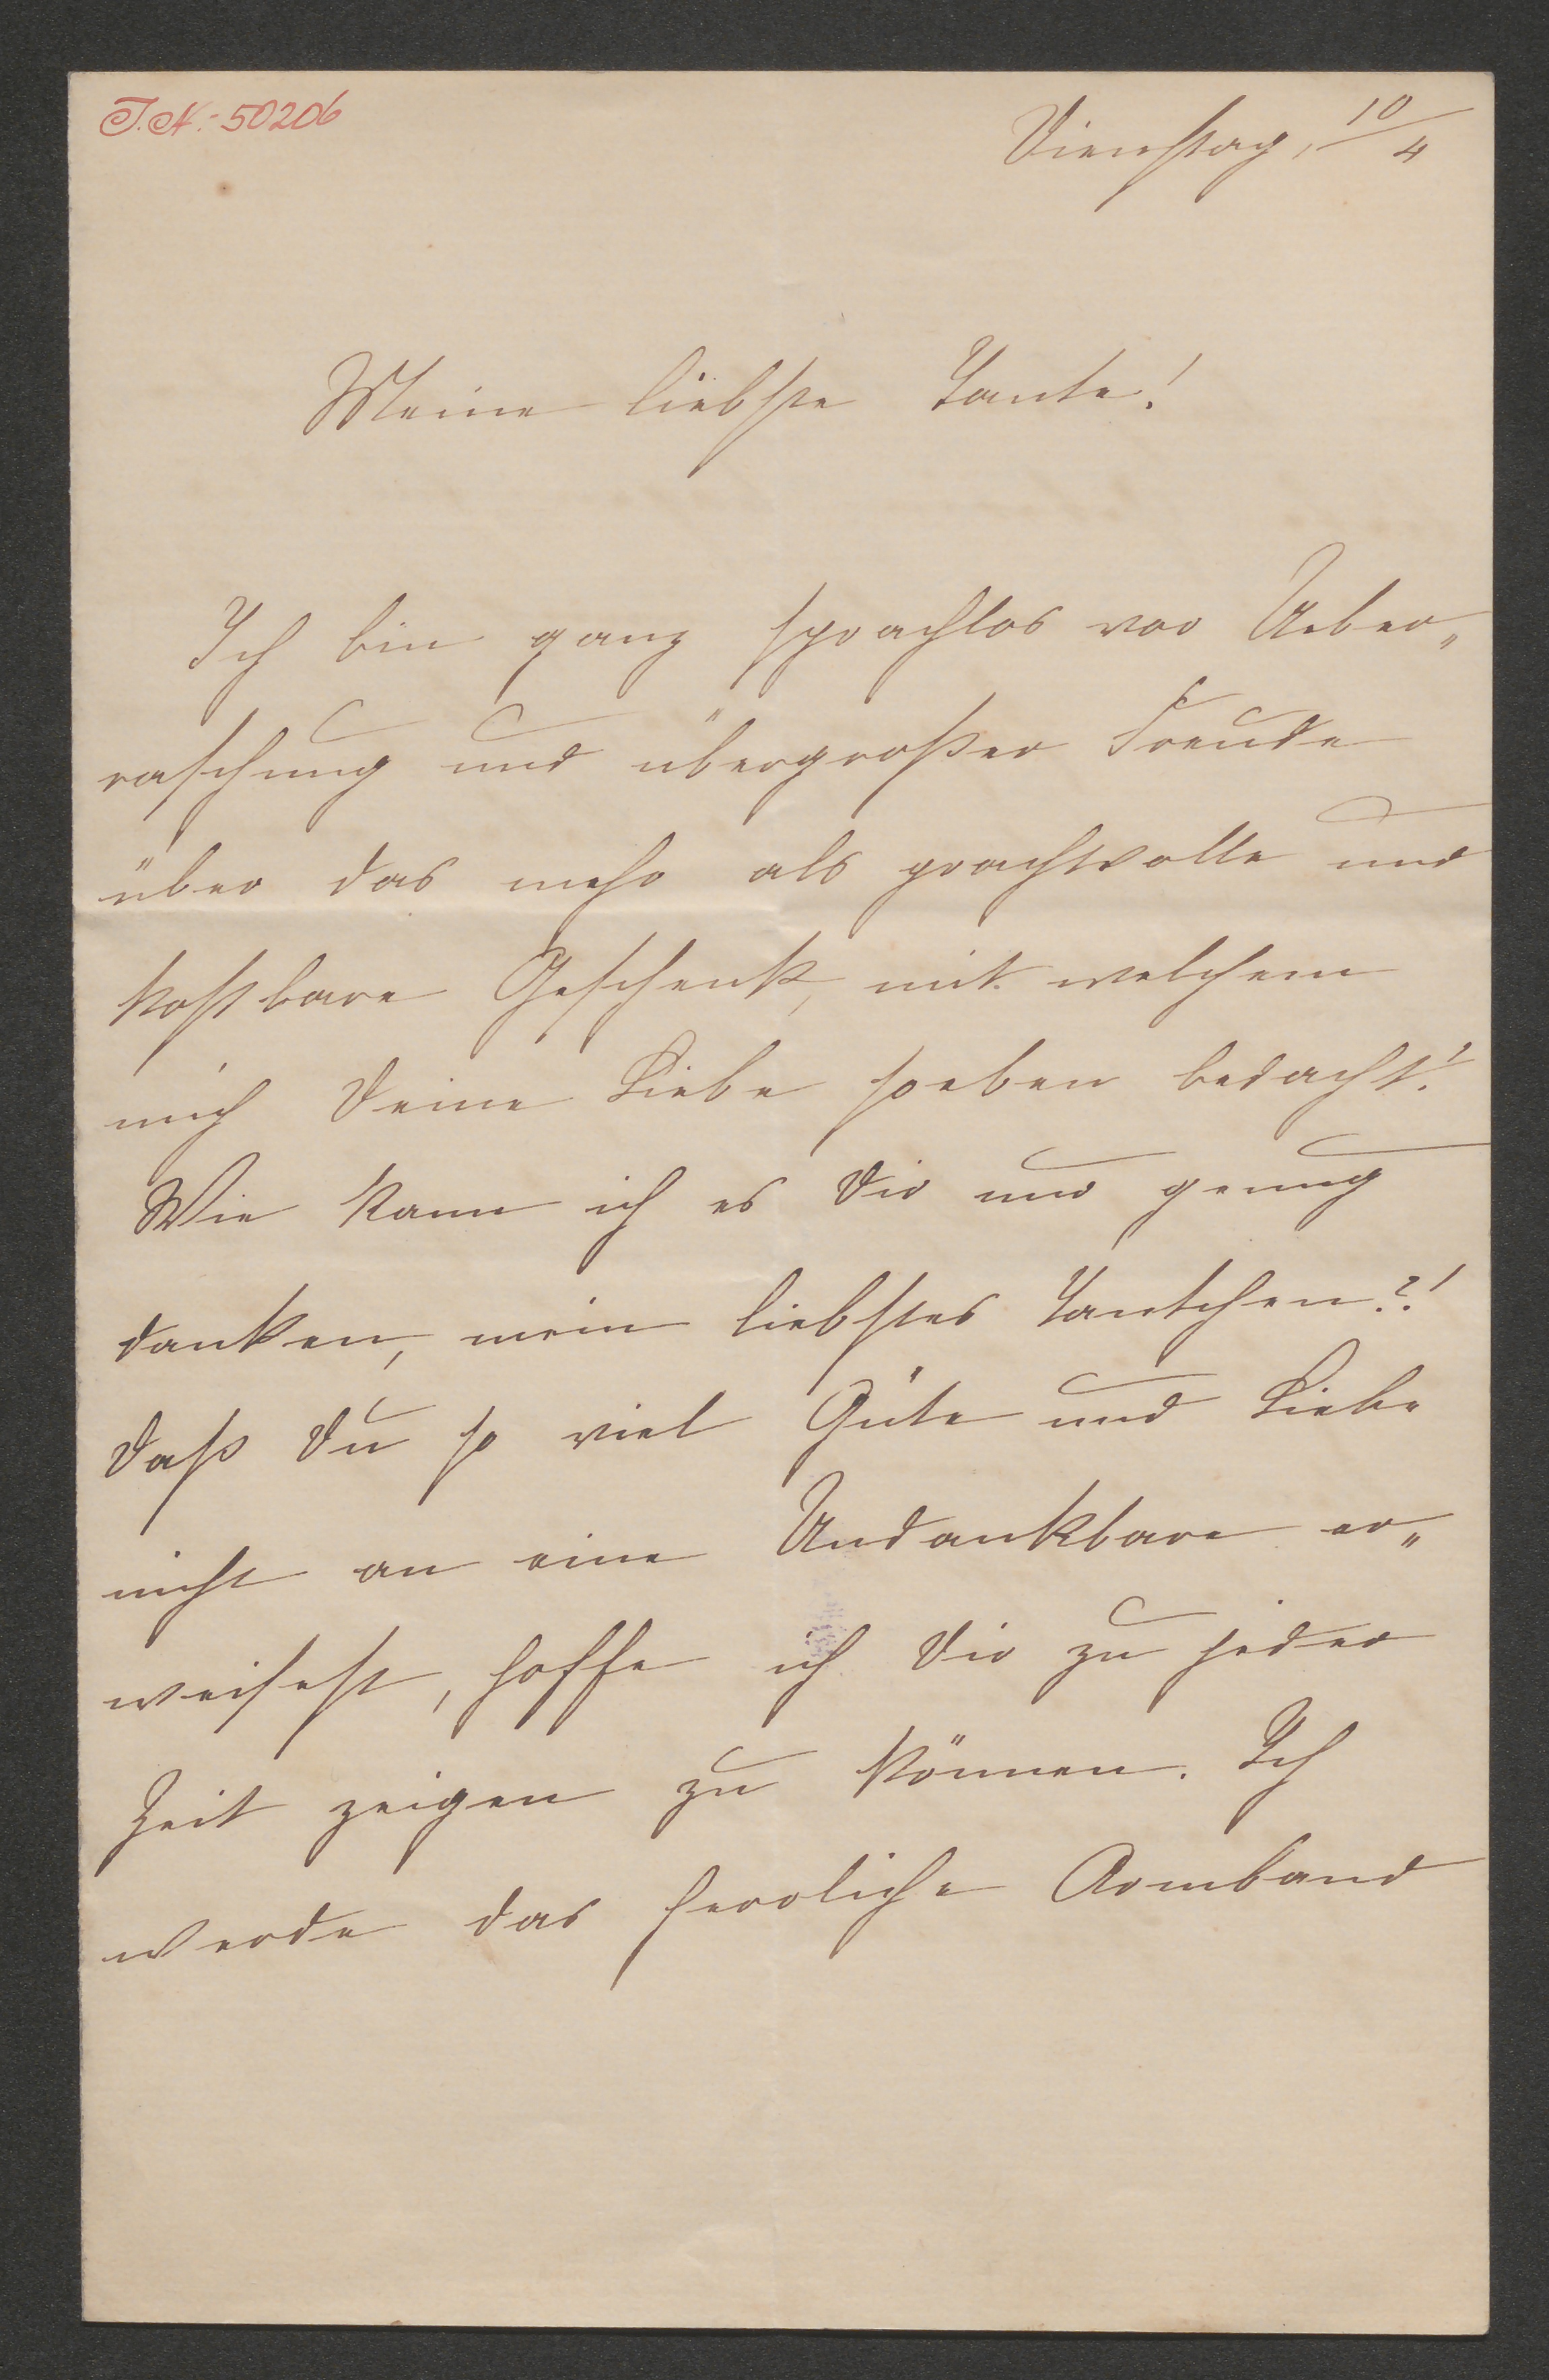 I.N.: 50206
Dienstag, 10/4
Meine liebste Tante!
Ich bin ganz sprachlos vor Ueber„
raschung und übergroßer Freude
über das mehr als prachtvolle und
kostbare Geschenk, mit welchem
mich Deine Liebe soeben bedacht!
Wie kann ich es Dir nur genug
danken, mein liebstes Tantchen?!
Daß Du so viel Güte und Liebe
nicht an eine Undankbare er„
weisest, hoffe ich Dir zu jeder
Zeit zeigen zu können. Ich
werde das herrliche Armband